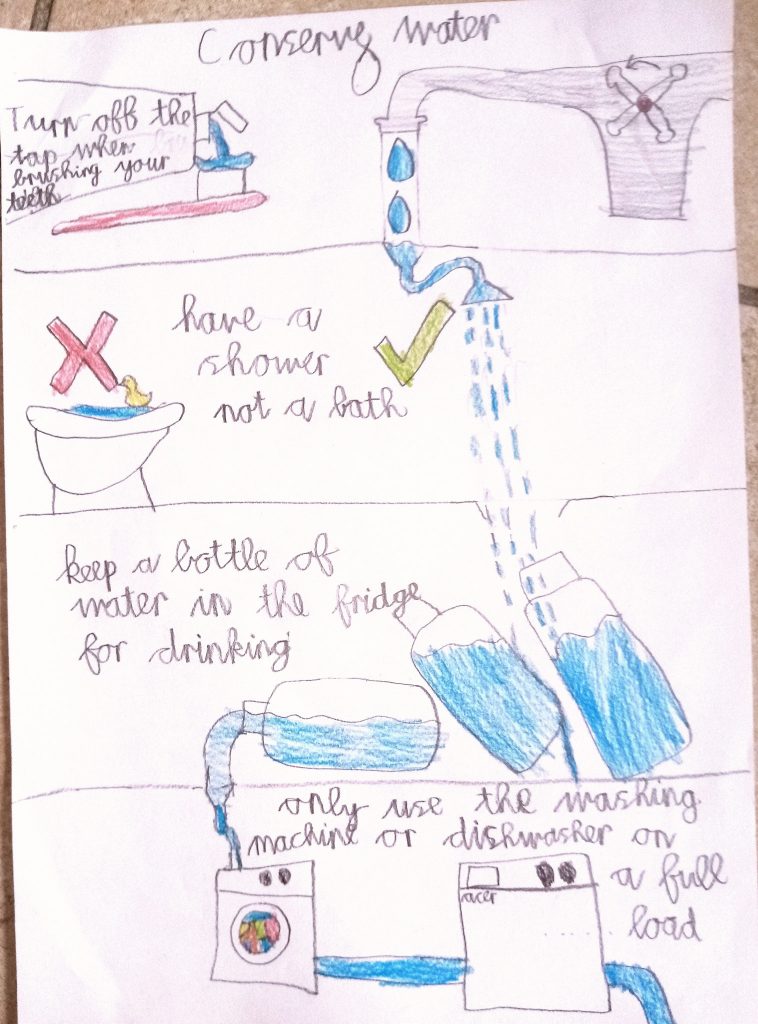 Conserve water
Turn off the
tap when
brushing your
teeth
have a
shower
not a bath
keep a bottle of
water in the fridge
for drinking
only use the washing
machine or dishwasher on
a full
load
acer